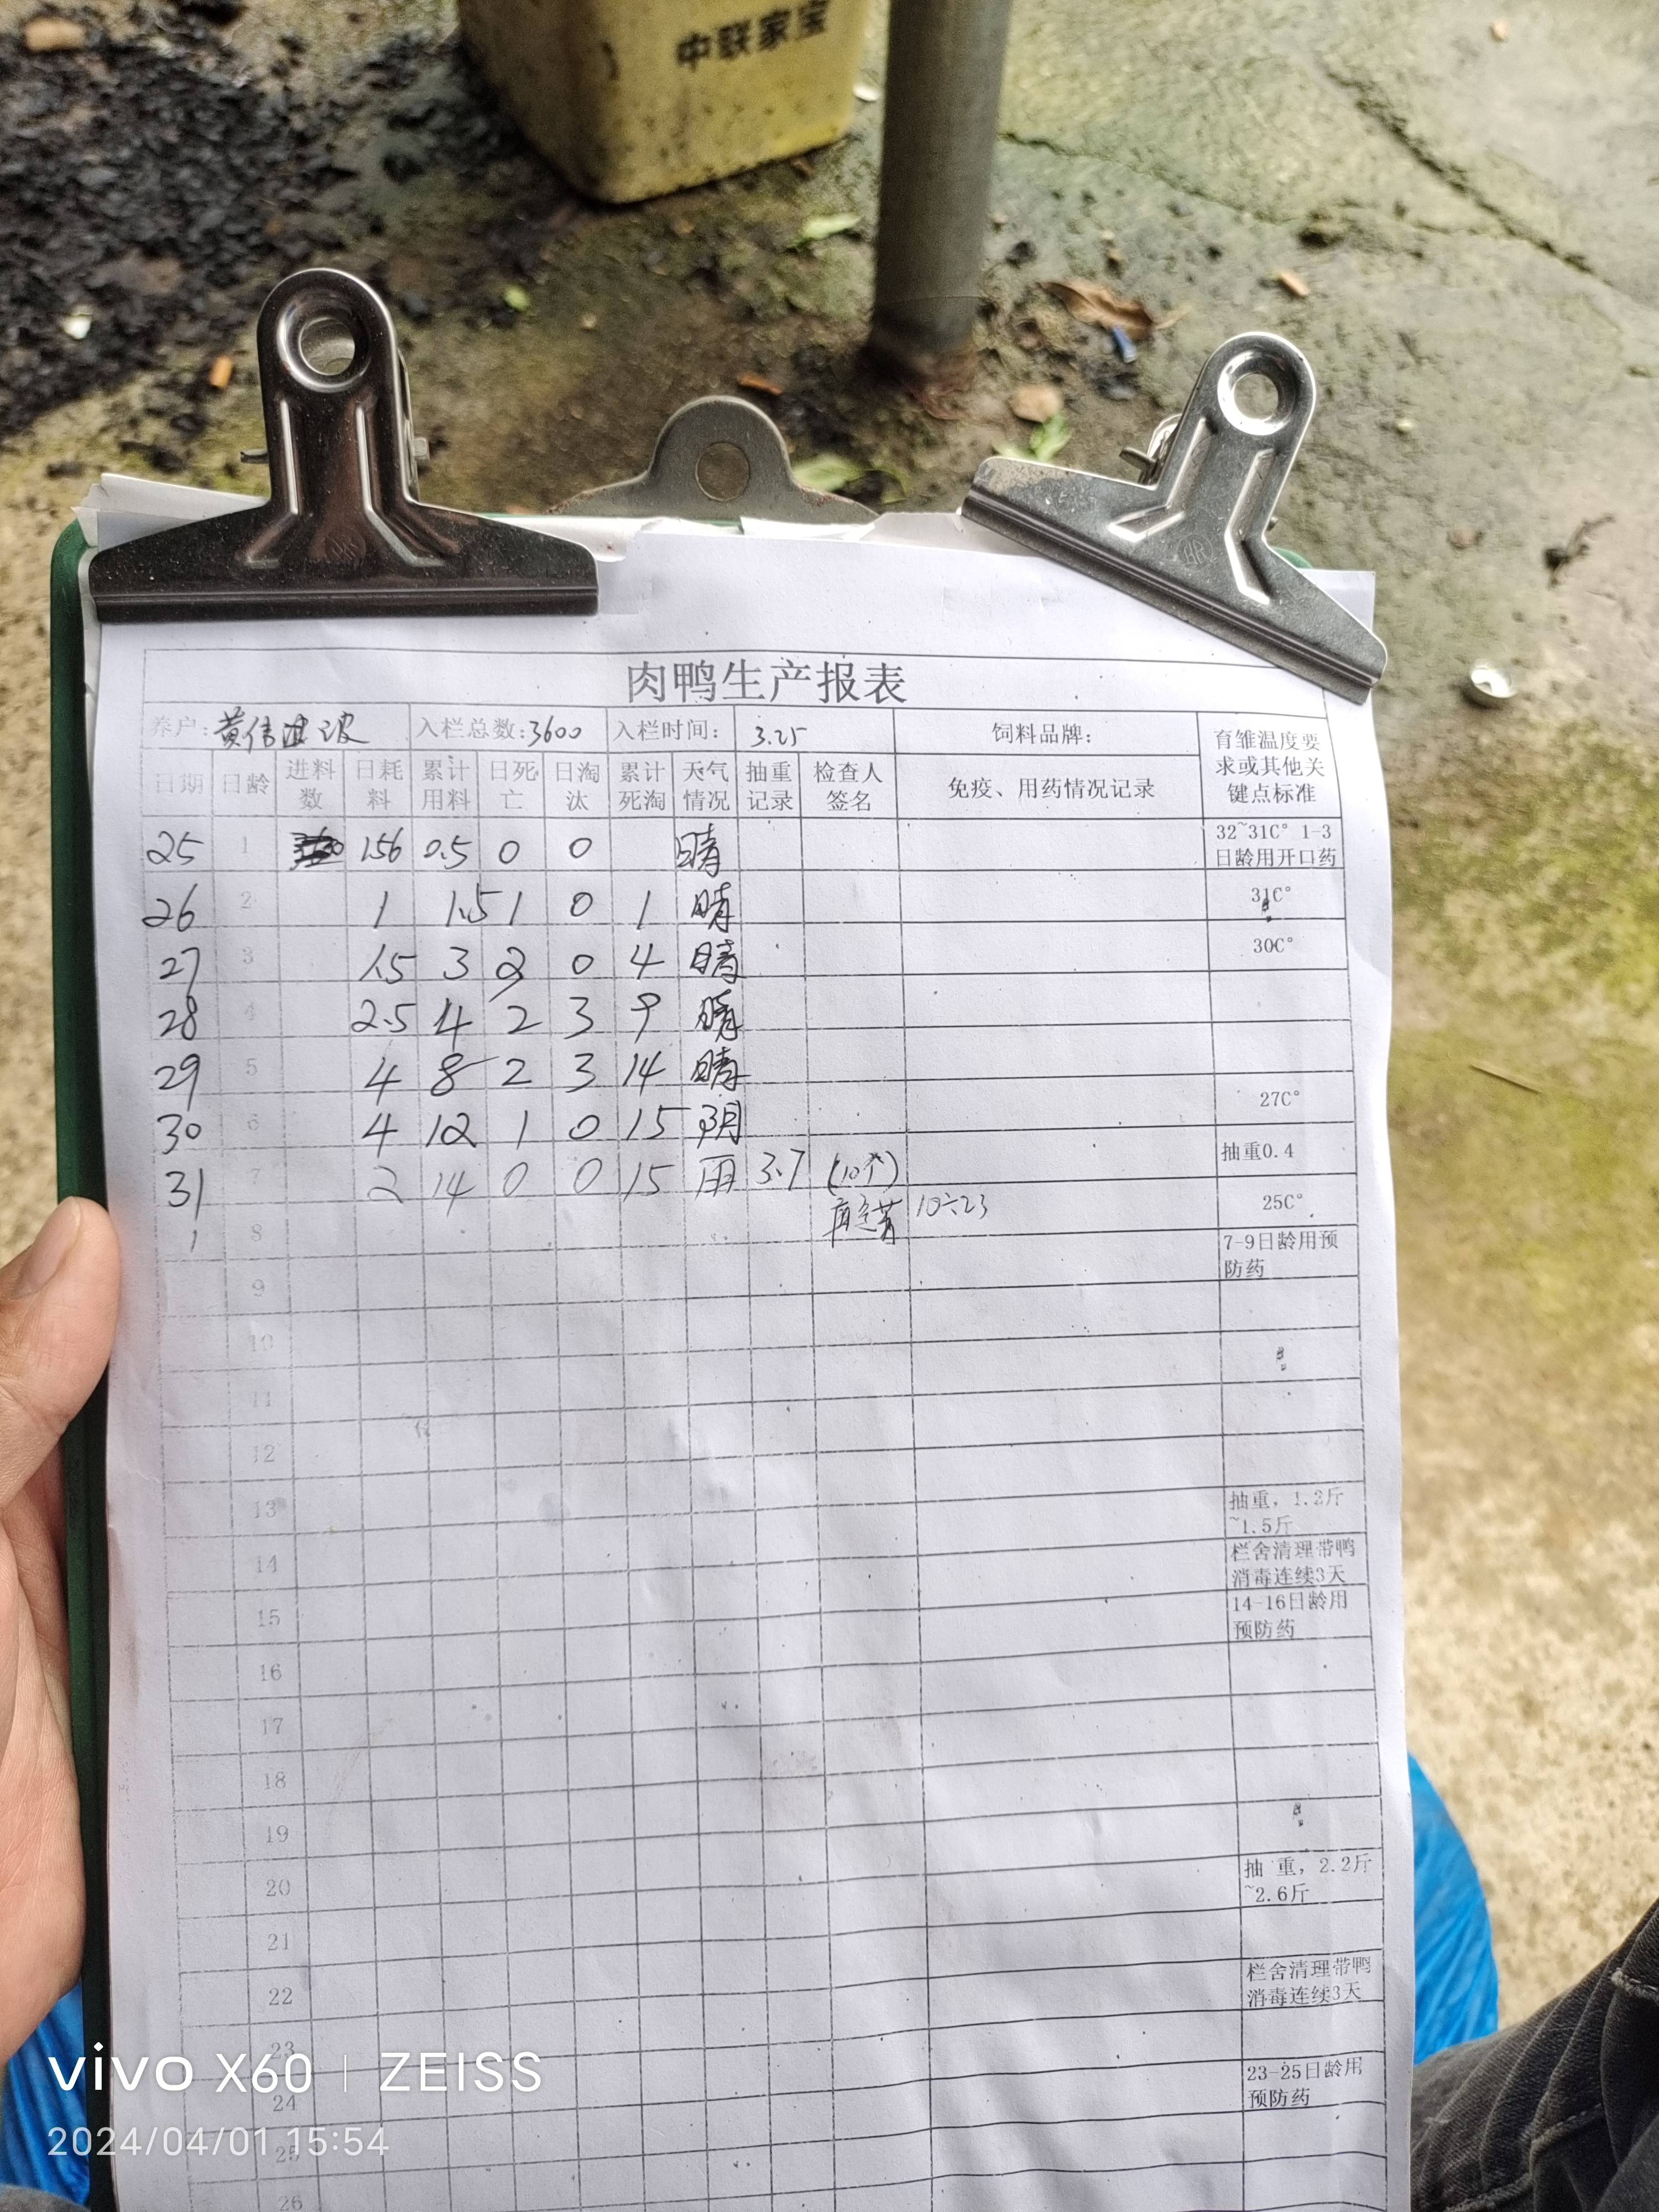 中联家宝
肉鸭生产报表
养户: 黄伟波 入栏总数:3600 入栏时间: 3.25 饲料品牌: 育雏温度要求或其他关键点标准
日期 日龄 进料数 日耗料 累计用料 日死亡 日淘汰 累计死淘 天气情况 抽重记录 检查人签名 免疫、用药情况记录
25 1 156 0.5 0 0 晴 32~31C° 1-3日龄用开口药
26 2 1 1.5 1 0 1 晴 31C°
27 3 1.5 3 2 0 4 晴 30C°
28 4 2.5 4 2 3 9 晴
29 5 4 8 2 3 14 晴
30 6 4 12 1 0 15 阴 27C°
31 7 2 14 0 0 15 雨 3.7 (10个) 抽重0.4
1 8 10÷23 25C°
9 7-9日龄用预防药
10
11
12
13 抽重，1.2斤~1.5斤
14 栏舍清理带鸭消毒连续3天
15 14-16日龄用预防药
16
17
18
19
20 抽 重，2.2斤~2.6斤
21
22 栏舍清理带鸭消毒连续3天
23
24 23-25日龄用预防药
25
26
vivo X60 | ZEISS
2024/04/01 15:54